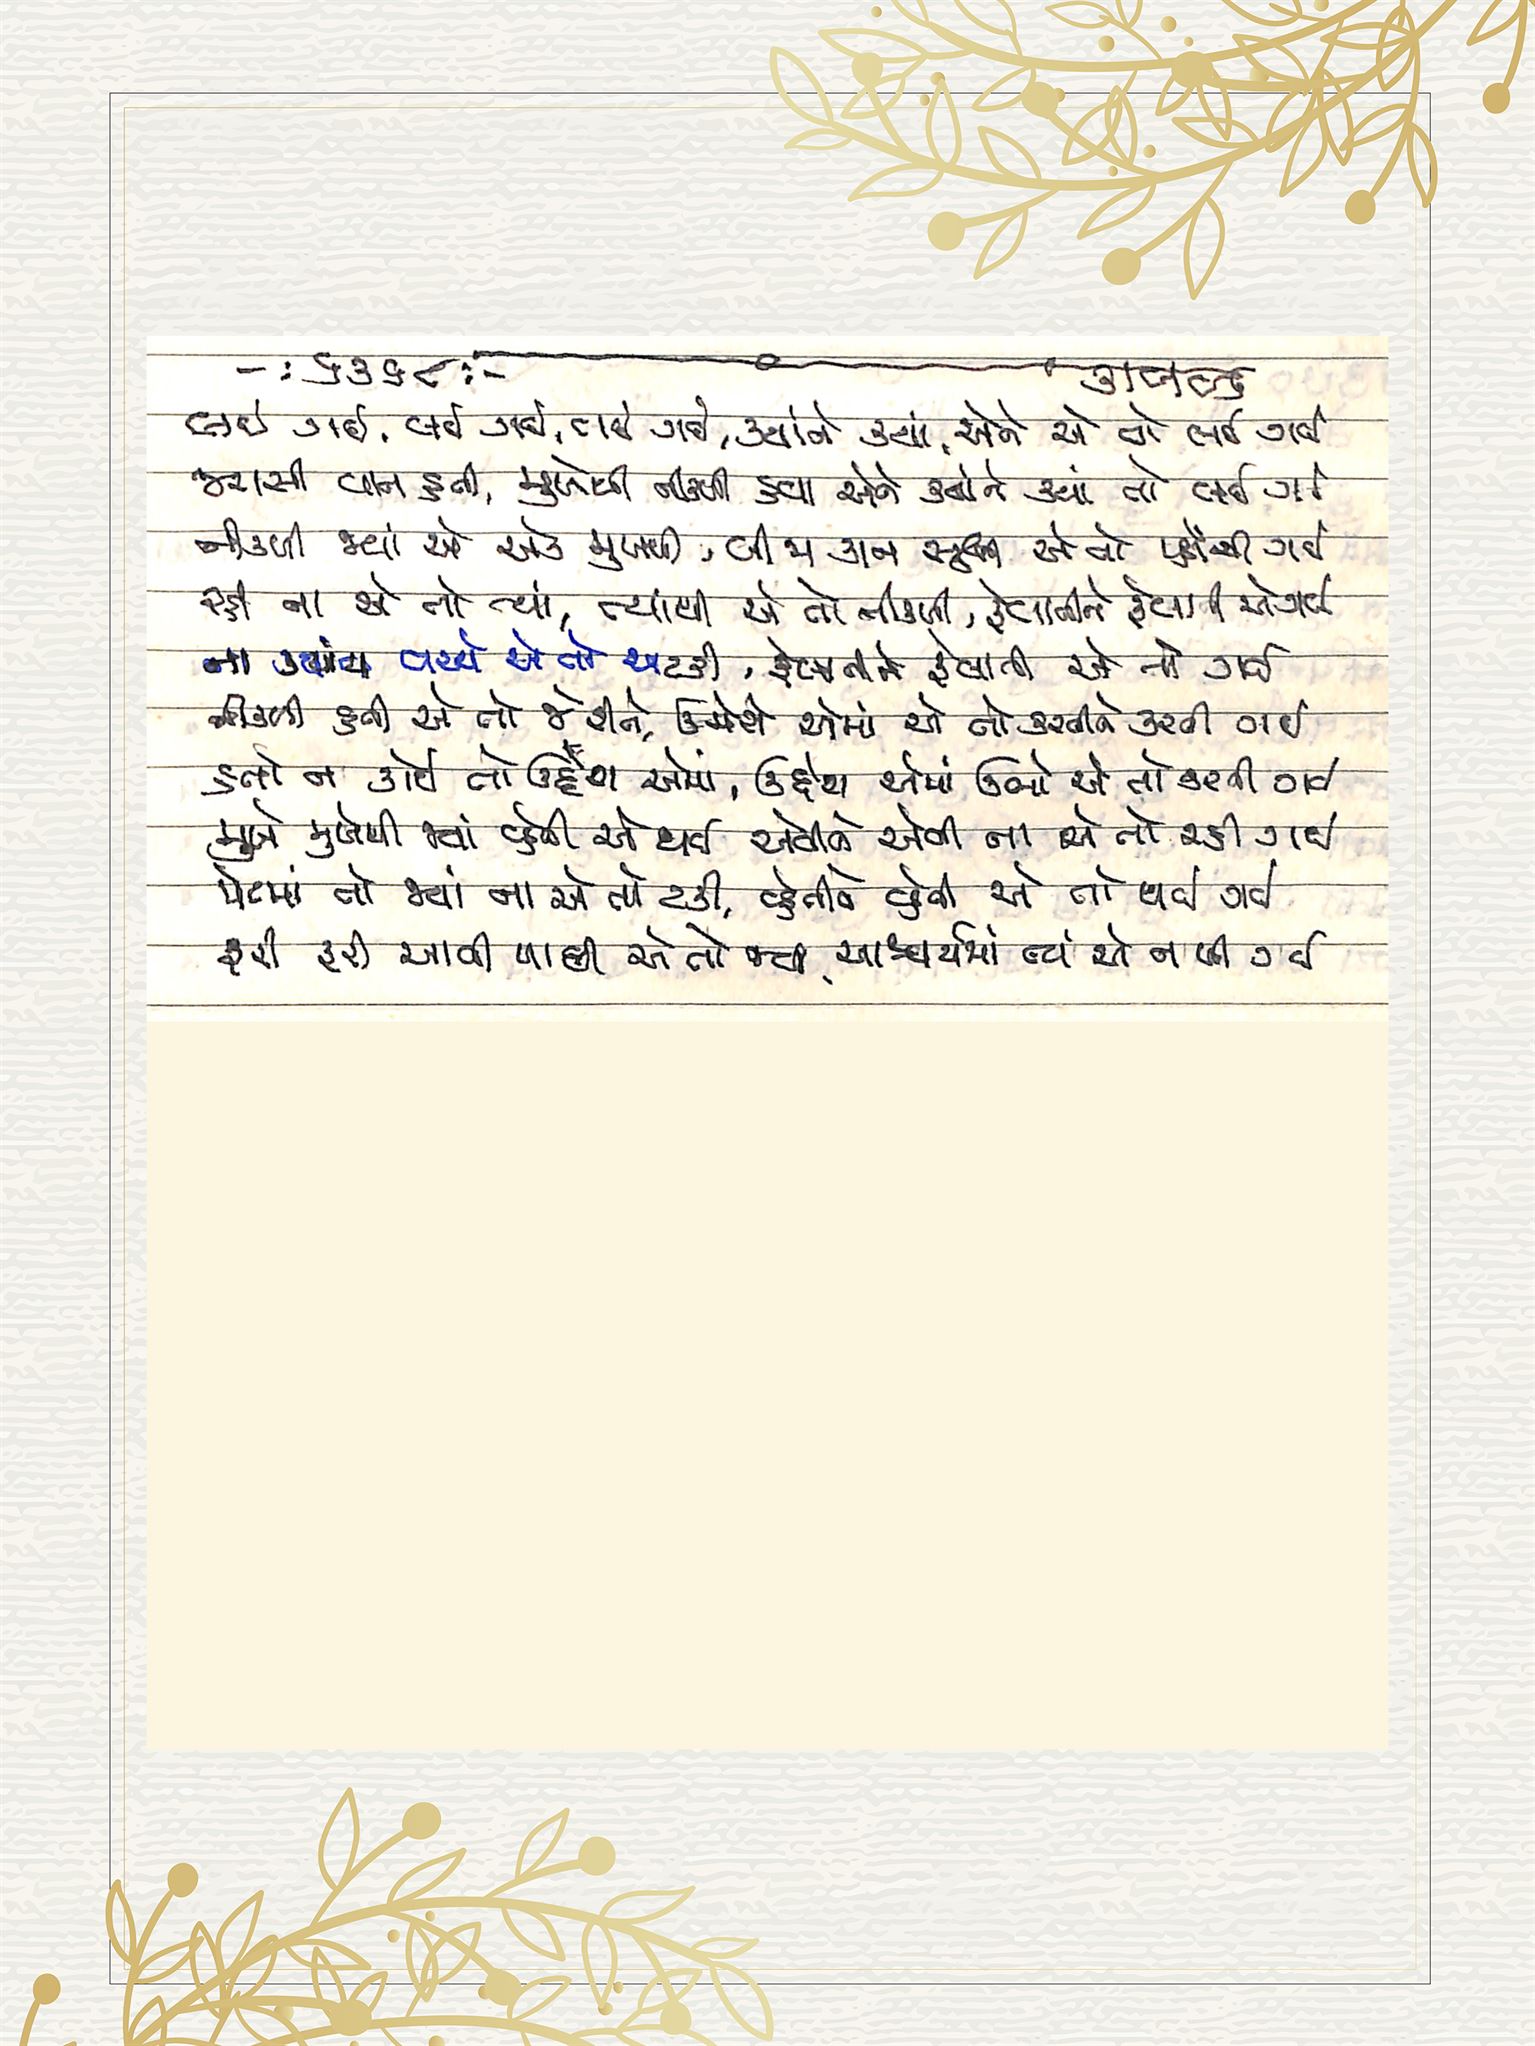 -: ૬૩૬૮ :-
લઈ ગઈ, લઈ ગઈ, લઈ ગઈ, ક્યાંને ક્યાં, એને એ તો લઈ ગઈ
જરાસી વાત હતી, મુખેથી નીકળી હવા એને ક્યાંને ક્યાં તો લઈ ગઈ
નીકળી જ્યાં એ એક મુખથી, બીજા કાન એ તો પહોંચી ગઈ
રહી ના એ તો ત્યાં, ત્યાંથી એ તો નીકળી, ફેલાતીને ફેલાતી એ ગઈ
ના ક્યાંય વચ્ચે એ તો અટકી, ફેલાતીને ફેલાતી એ તો ગઈ
નીકળી હતી એ તો જે એમાં એ તો કરતીને કરતી ગઈ
હતો ન કોઈ તો ઉદ્દેશ એમાં, ઉદ્દેશ એમાં ઊભો એ તો કરતી ગઈ
મુખે મુખેથી જ્યાં વ્હેતી એ થઈ એવીને એવી ના એ તો રહી ગઈ
પેટમાં તો જ્યાં ના એ તો ટકી, વ્હેતીને વ્હેતી એ તો થઈ ગઈ
ફરી ફરી આવી પાછી એ તો જ્યાં, આશ્ચર્યમાં ત્યાં એ નાખી ગઈ